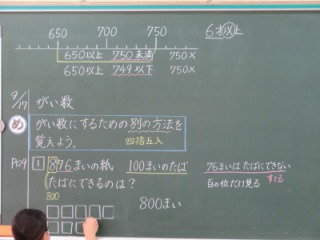 650 700 750
650以上 750未満 750×
650以上 749以下 750×
6才以上
9/17 がい数
め がい数にするための別の方法を
覚えよう。 四捨五入
P129 1 876まいの紙 100まいのたば
たばにできるのは？
800
800まい
76まいは たばにできない
すてる
百の位だけ見る